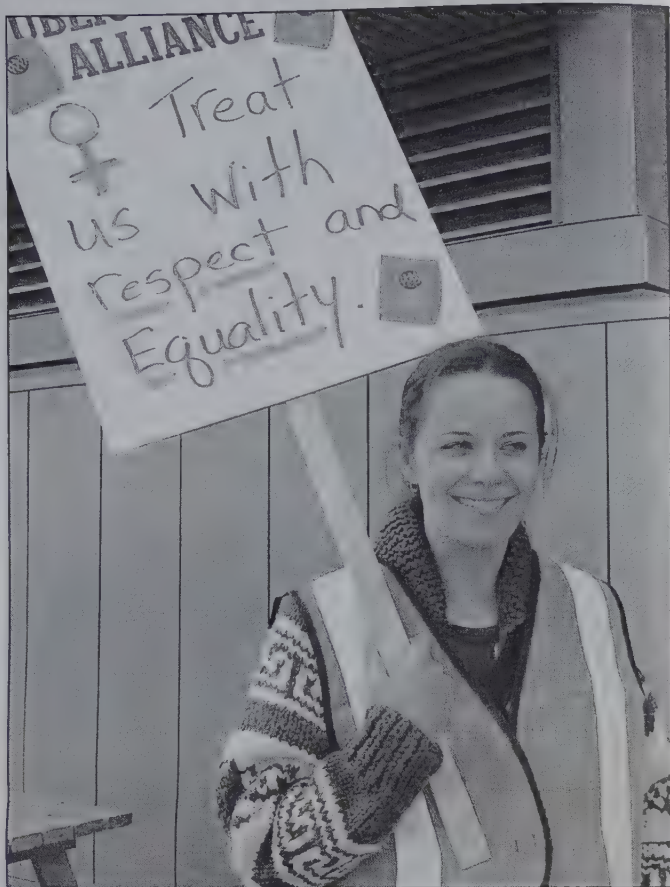 UBLIC
ALLIANCE
♀ Treat
us with
respect and
Equality.